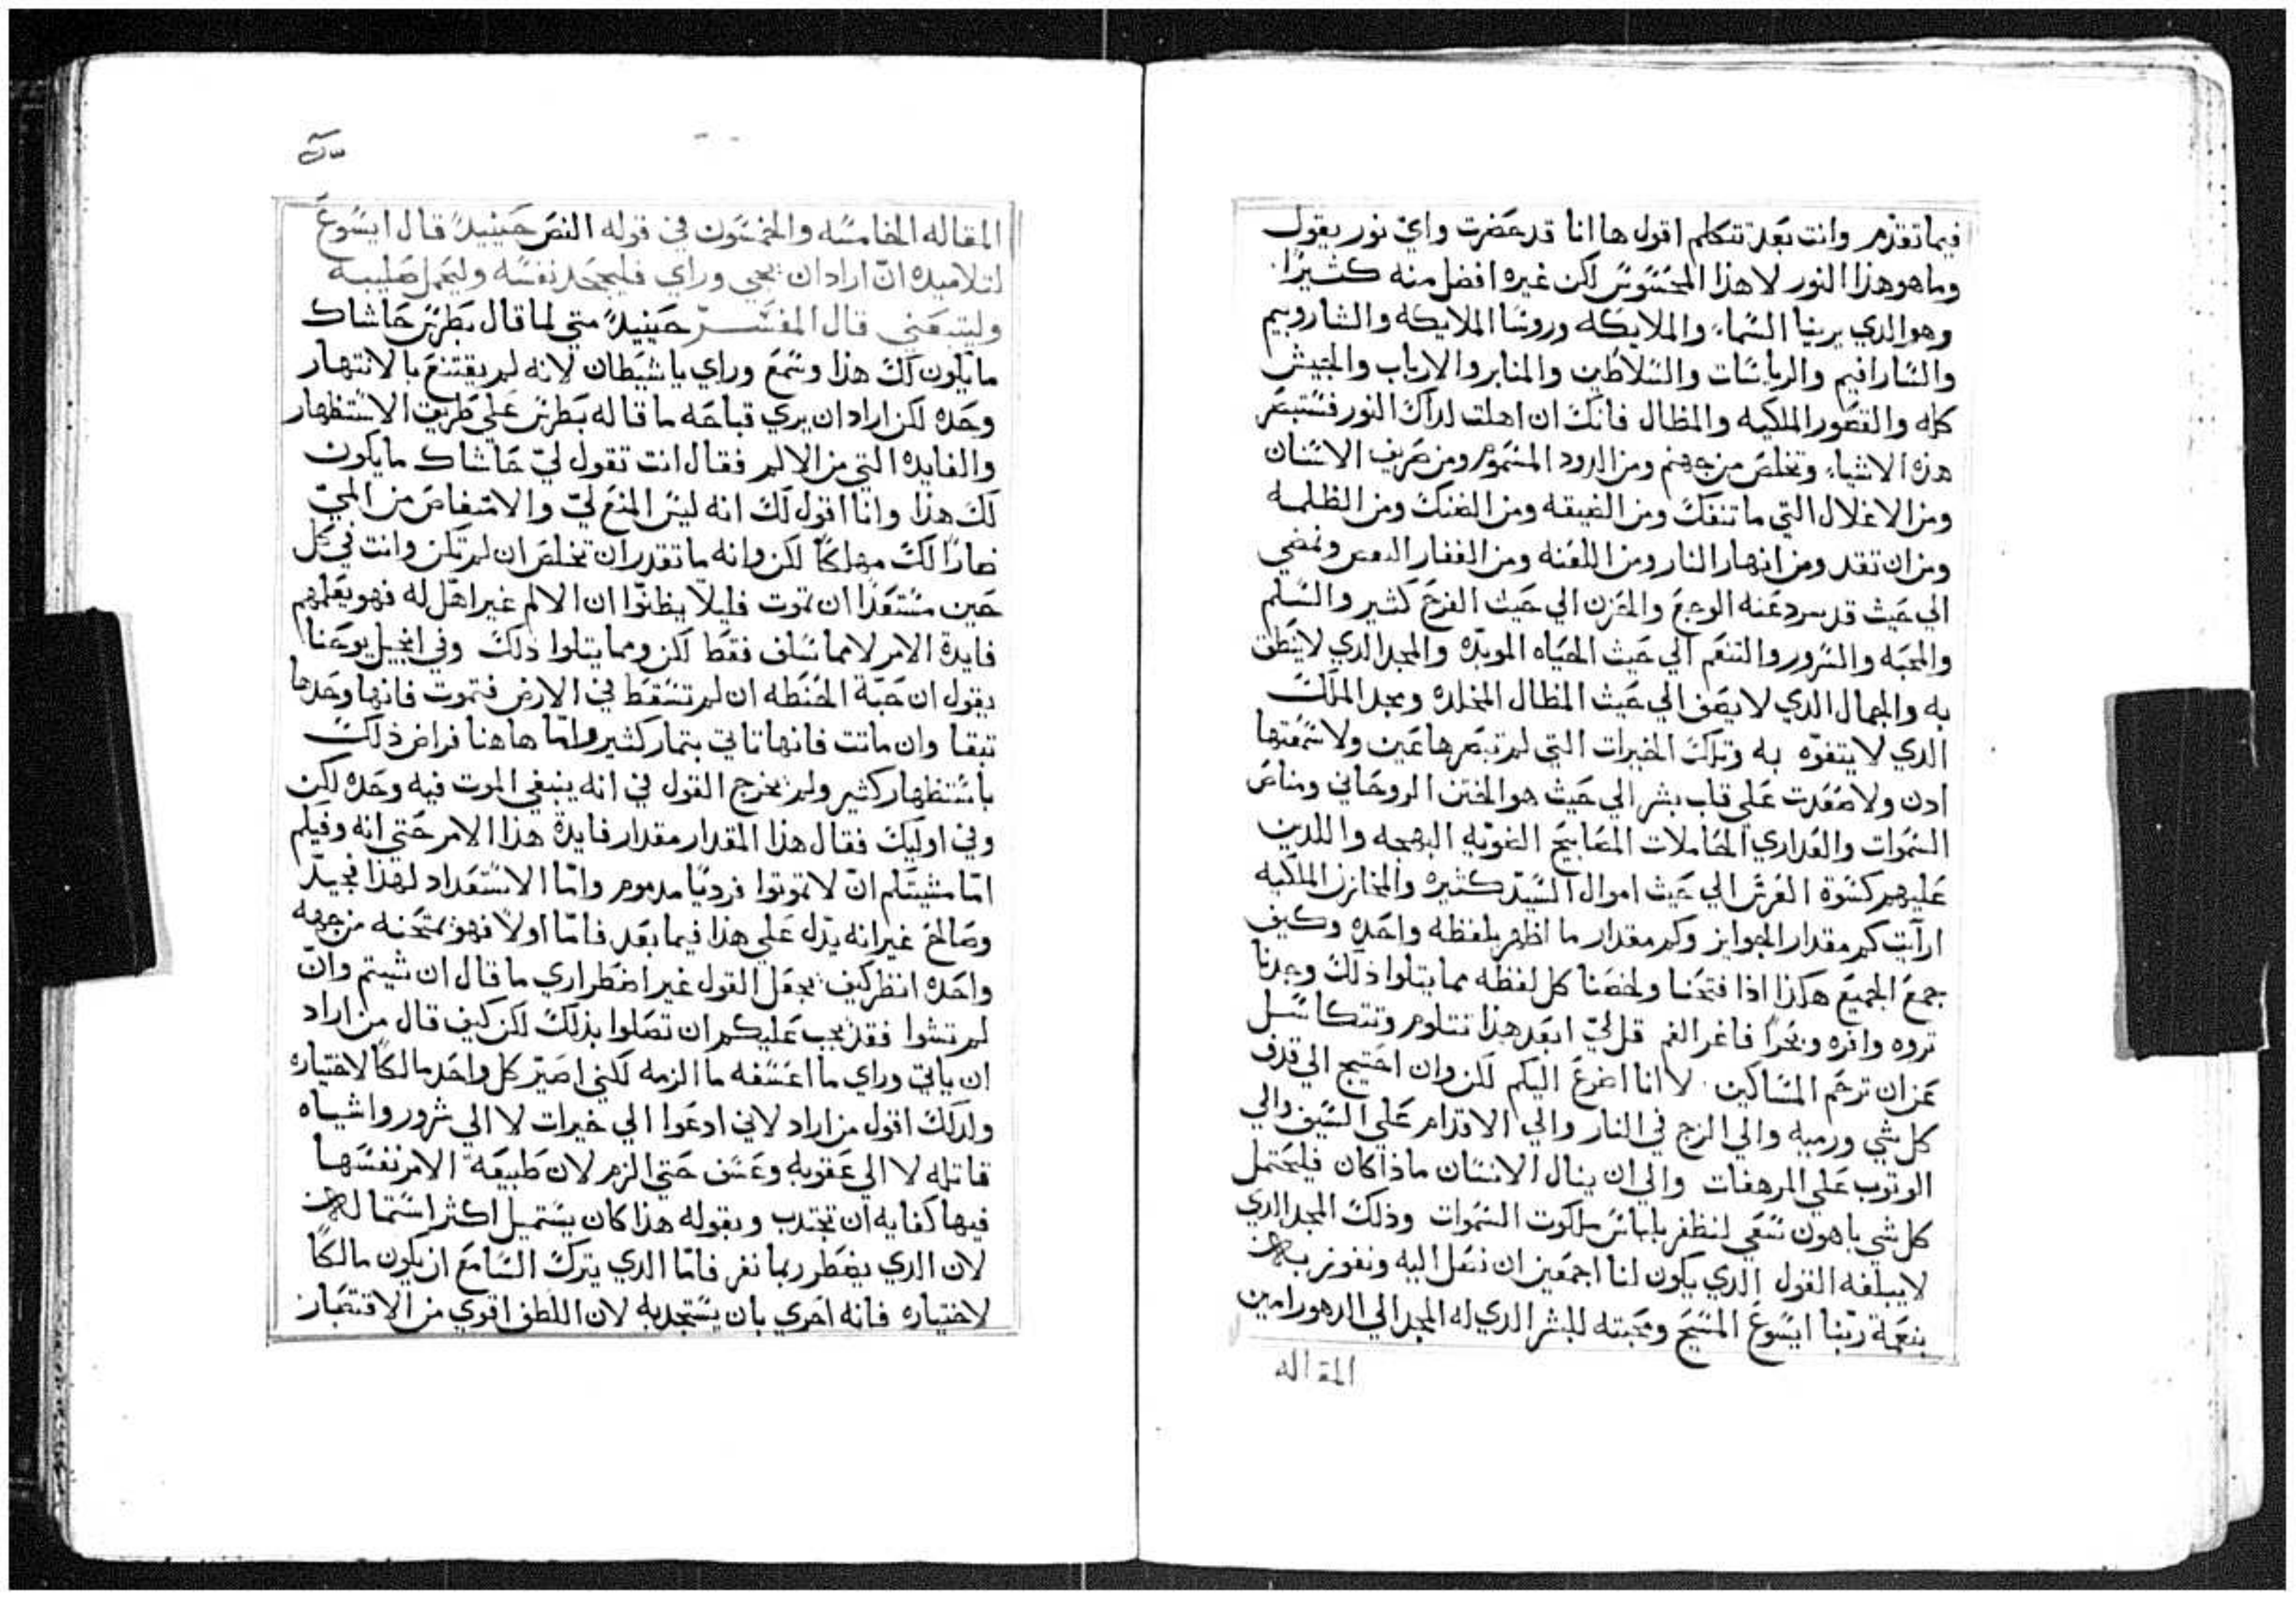 فيما تقدم وانت بعد تتكلم اقول ها انا قد حضرت واي نور يقول
وما هو هذا النور لا هذا المحسوس لكن غيره افضل منه كثيرًا
وهو الدي يرينا السماء والملايكه وروسا الملايكه والشاروبيم
والسارافيم والرياسات والسلاطين والمنابر والارباب والجيش
كله والقصور الملكيه والمظال فانك ان اهلت لداك النور فستبصر
هذه الاشياء وتخلص من جهنم ومن الدود المسموم ومن صريف الاسنان
ومن الاغلال التي ما تنفك ومن الضيقه ومن الضنك ومن الظلمه
ومن ان تقد ومن انهار النار ومن اللعنه ومن القفار وتمضي
الي حيث قد عنه الوجع والحزن الي حيث الفرح كثير والسلم
والمحبه والسرور والتنعم الي حيث الحياه الموبّده والمجد الدي لا ينطق
به والجمال الدي لا يصف الي حيث المظال المخلده ومجد الملك
الدي لا يتفوّه به وتلك الخيرات التي لم تبصرها عين ولا سمعتها
ادن ولا صعدت علي قلب بشر الي حيث هو الختن الروحاني ومناص
السموات والعداري الحاملات المصابيح الضويه البهجه واللدين
عليهم كسوة العرس الي حيث اموال السيد كثيره والمخازن الملكيه
ارايت كم مقدار الجوايز وكم مقدار ما اظهر بلفظه واحده وكيف
جمع الجميع هكذا اذا فتحنا ولخصنا كل لفظه مما يتلوا ذلك وجدنا
تروه وافره وبحرًا فاغر الفم قل لي ابعد هذا نتلوم ونتكاسل
عن ان ترحم المساكين لا انا اضرع اليكم لكن وان احتيج الي قدف
كل شي ورميه والي الزج في النار والي الاقدام علي السيف والي
الوتوب علي المرهفات والي ان ينال الانسان ماذا كان فليحتمل
كل شي باهون سعي لنظفر بلباس ملكوت السموات وذلك المجد الدي
لا يبلغه القول الدي يكون لنا اجمعين ان نصل اليه ونفوز به
بنعمة ربّنا ايسوع المسيح ومحبته للبشر الدي له المجد الي الدهور امين
المقاله
المقاله الخامسه والخمسون في قوله النص حينيدً قال ايسوع
لتلاميده انّ اراد ان يجي وراي فليجحد نفسه وليحمل صليبه
وليتبعني قال المفسّر حينيدً متي لما قال بطرس حاشاك
ما يكون لك هذا وسمع وراي يا شيطان لانه لم يقتنع بالانتهار
وحده لكن اراد ان يري قباحه ما قاله بطرس علي طريق الاستظهار
والفايده التي من الالم فقال انت تقول ليّ حاشاك ما يكون
لك هذا وانا اقول لك انه ليس المنع ليّ والامتعاض من المي
ضارًا لك مهلكًا لكن وانه ما تقدر ان تخلص ان لم تكن وانت في كل
حين مستعدًا ان تموت فليلا يظنّوا ان الالم غير اهل له فهو يعلمهم
فايدة الامر لا مما سلف فقط لكن ومما يتلوا ذلك وفي انجيل يوحنا
يقول ان حبّة الحنطه ان لم تسقط في الارض فتموت فانها وحدها
تبقا وان ماتت فانها تاتي بتمار كثير وامّا هاهنا فراض ذلك
باستظهار كثير ولم يخرج القول في انه ينبغي الموت فيه وحده لكن
وفي اوليك فقال هذا المقدار مقدار فايدة هذا الامر حتي انه وفيكم
امّا مشيتكم انّ لا تموتوا فرديًا مدموم وامّا الاستعداد لهذا فجيدّ
وصالح غير انه يدّل علي هذا فيما بعد فامّا اولًا فهو يمتحنه من جهه
واحده انظر كيف يجعل القول غير اضطراري ما قال ان شيتم وانّ
لم تشوا فقد يجب عليكم ان تصلوا بذلك لكن كيف قال من اراد
ان ياتي وراي ما اعسفه ما الزمه لكني اصيّر كل واحد مالكًا لاختياره
ولدلك اقول من اراد لاني ادعوا الي خيرات لا الي شرور واشياه
قاتله لا الي عقوبه وعسف حتي الزم لان طبيعة الامر نفسها
فيها كفايه ان تجتدب وبقوله هذا كان يستميل اكثر استماله
لان الدي يضطر ربما نفر فامّا الدي يترك السامع ان يكون مالكًا
لاختياره فانه احري بان يستجدبه لان اللطف اقوي من الاقتصار